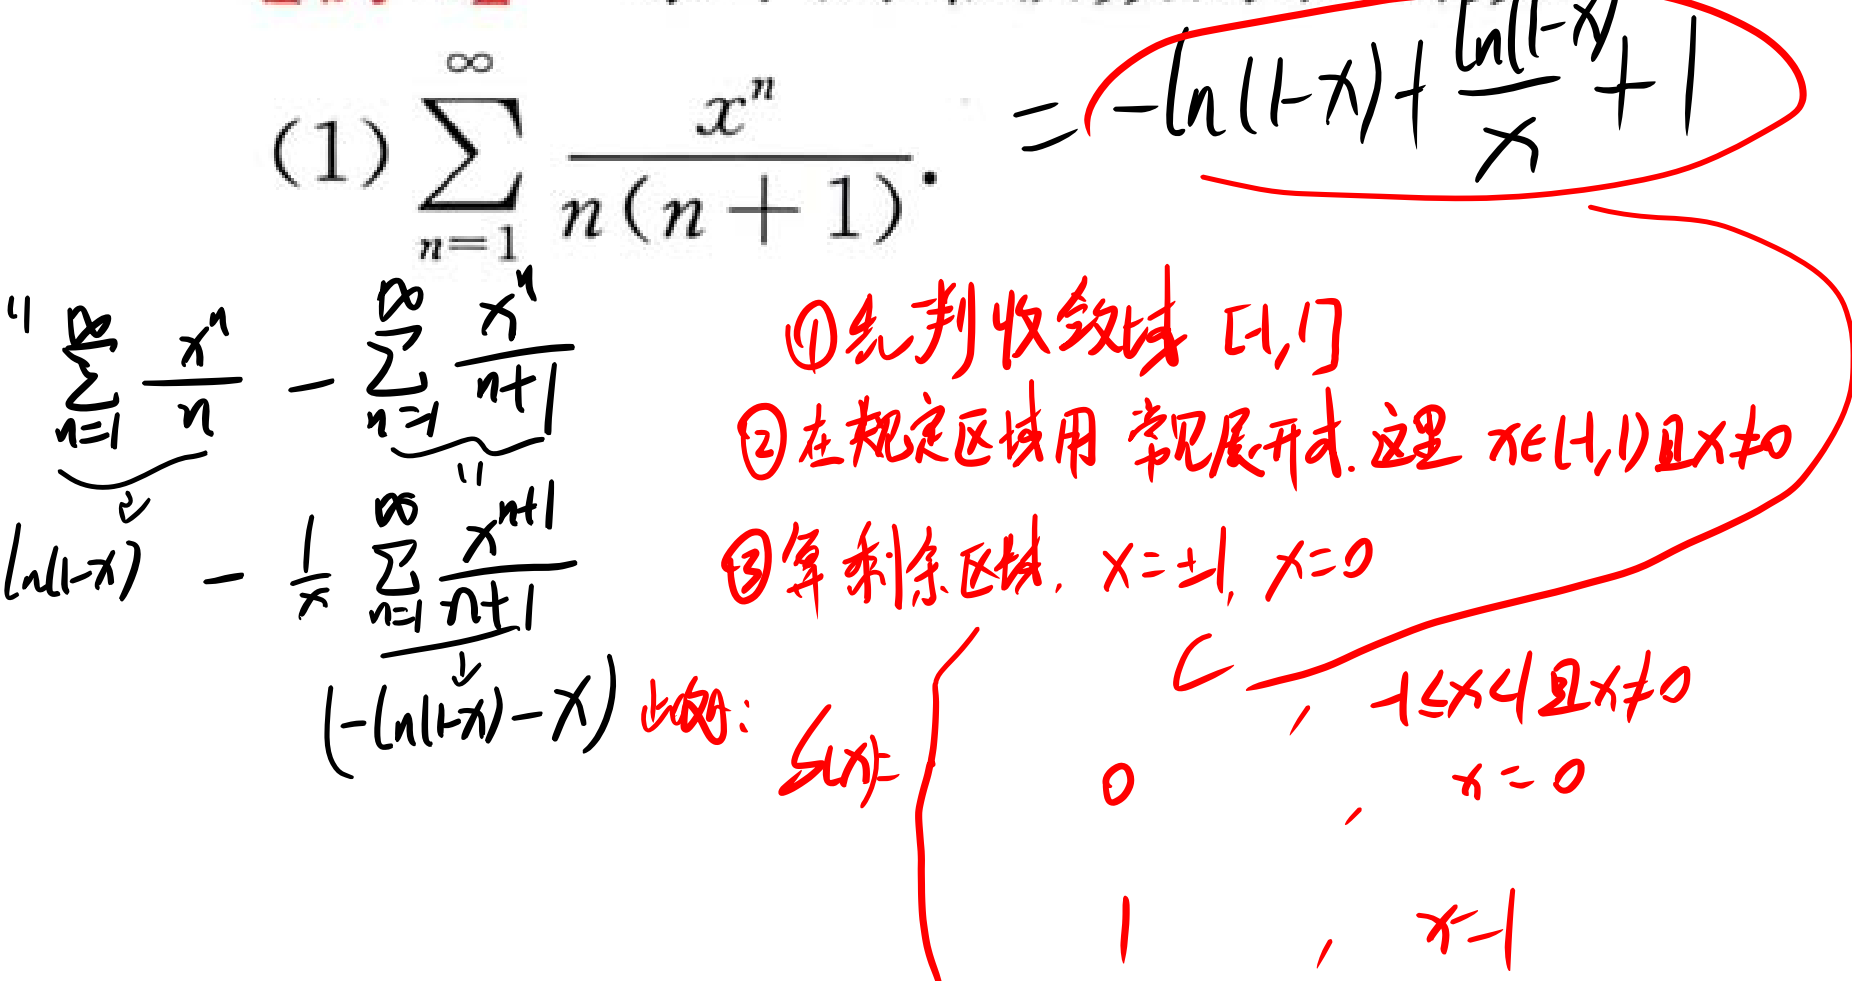 (1) $\sum_{n=1}^{\infty} \frac{x^n}{n(n+1)}.$ $= -\ln(1-x) + \frac{\ln(1-x)}{x} + 1$
" $\sum_{n=1}^{\infty} \frac{x^n}{n} - \sum_{n=1}^{\infty} \frac{x^n}{n+1}$
$\ln(1-x) - \frac{1}{x} \sum_{n=1}^{\infty} \frac{x^{n+1}}{n+1}$
$(-\ln(1-x) - x)$
①先判收敛域 [-1,1]
②在规定区域用常见展开式.这里 x∈(-1,1)且x≠0
③算剩余区域, x=±1, x=0
此时:
S(x)= {
, -1≤x<1且x≠0
0 , x=0
1 , x=1